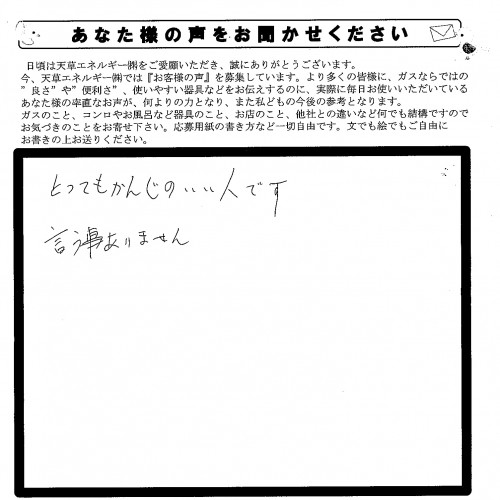 あなた様の声をお聞かせください
日頃は天草エネルギー㈱をご愛願いただき、誠にありがとうございます。
今、天草エネルギー㈱では『お客様の声』を募集しています。より多くの皆様に、ガスならではの
”良さ”や”便利さ”、使いやすい器具などをお伝えするのに、実際に毎日お使いいただいている
あなた様の率直なお声が、何よりの力となり、また私どもの今後の参考となります。
ガスのこと、コンロやお風呂など器具のこと、お店のこと、他社との違いなど何でも結構ですので
お気づきのことをお寄せ下さい。応募用紙の書き方など一切自由です。文でも絵でもご自由に
お書きの上お送りください。
とってもかんじのいい人です
言う事ありません